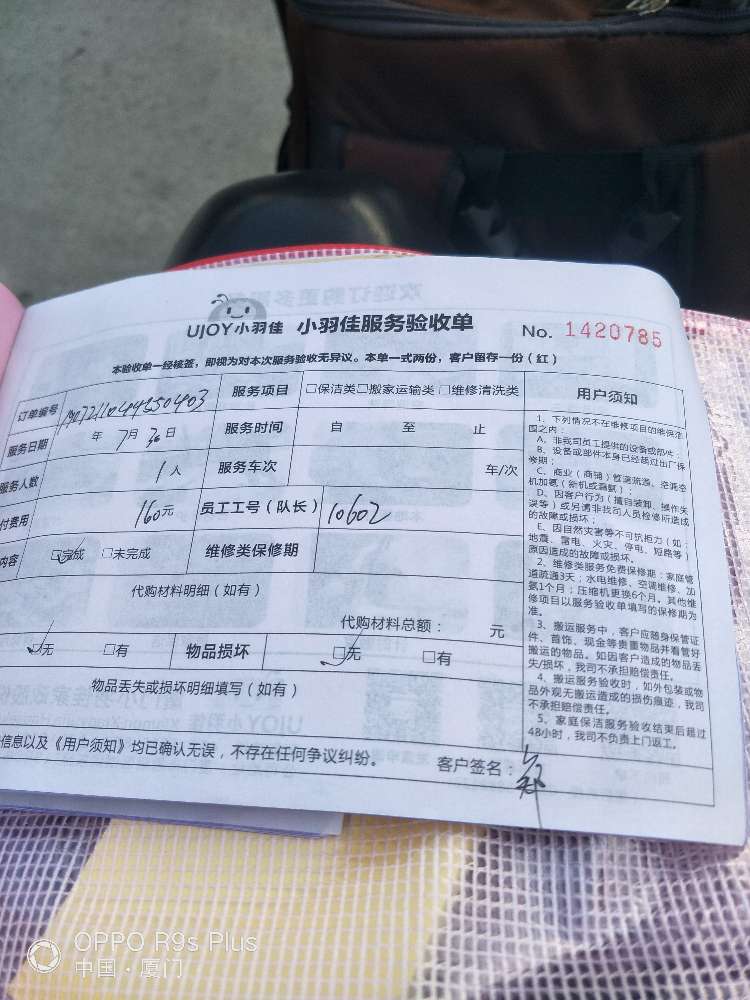 UJOY小羽佳 小羽佳服务验收单 No. 1420785
本验收单一经被签，即视为对本次服务验收无异议。本单一式两份，客户留存一份（红）
订单编号 服务项目 □保洁类□搬家运输类 □维修清洗类 用户须知
服务日期 年 7月 30日 服务时间 自 至 止
服务人数 1人 服务车次 车/次
付费用 160元 员工工号（队长） 10602
内容 ☑完成 □未完成 维修类保修期
代购材料明细（如有）
代购材料总额： 元
☑无 □有 物品损坏 ☑无 □有
物品丢失或损坏明细填写（如有）
信息以及《用户须知》均已确认无误，不存在任何争议纠纷。 客户签名：
1、下列情况不在维修项目的维保范
围之内：
A、非我司员工提供的设备或部件；
B、设备或部件本身已经超过出厂保
修期；
C、商业（商铺）管道疏通、空调空
机加氨（新机或漏氨）；
D、因客户行为（擅自装卸、操作失
误等）或另请非我司人员检修所造成
的故障或损坏；
E、因自然灾害等不可抗拒力（如：
地震、雷电、火灾、停电、短路等）
原因造成的故障或损坏。
2、维修类服务免费保修期：家庭管
道疏通3天；水电维修、空调维修、加
氨1个月；压缩机更换6个月。其他维
修项目以服务验收单填写的保修期为
准。
3、搬运服务中，客户应随身保管证
件、首饰、现金等贵重物品并看管好
搬运的物品。如因客户造成的物品丢
失/损坏，我司不承担赔偿责任。
4、搬运服务验收时，如外包装或物
品外观无搬运造成的损伤痕迹，我司
不承担赔偿责任。
5、家庭保洁服务验收结束后超过
48小时，我司不负责上门返工。
OPPO R9s Plus
中国·厦门